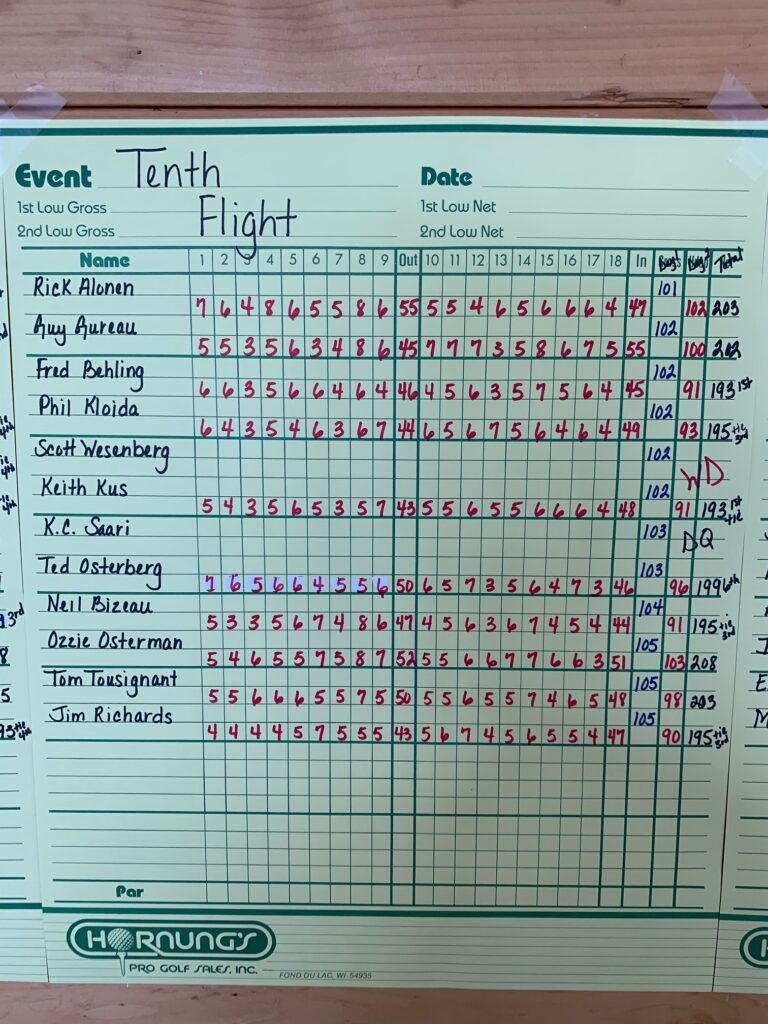 Event Tenth Date
1st Low Gross Flight 1st Low Net
2nd Low Gross 2nd Low Net
Name 1 2 3 4 5 6 7 8 9 Out 10 11 12 13 14 15 16 17 18 In Total
Rick Alonen 101
7 6 4 8 6 5 5 8 6 55 5 5 4 6 5 6 6 6 4 47 102 203
Guy Aureau 102
5 5 3 5 6 3 4 8 6 45 7 7 7 3 5 8 6 7 5 55 100 202
Fred Behling 102
6 6 3 5 6 6 4 6 4 46 4 5 6 3 5 7 5 6 4 45 91 193 1st
Phil Kloida 102
6 4 3 5 4 6 3 6 7 44 6 5 6 7 5 6 4 6 4 49 93 195 tie 3rd
Scott Wesenberg 102
WD
Keith Kus 102
5 4 3 5 6 5 3 5 7 43 5 5 6 5 5 6 6 6 4 48 91 193 1st tie
K.C. Saari 103
DQ
Ted Osterberg 103
7 6 5 6 6 4 5 5 6 50 6 5 7 3 5 6 4 7 3 46 96 199 6th
Neil Bizeau 104
5 3 3 5 6 7 4 8 6 47 4 5 6 3 6 7 4 5 4 44 91 195 tie 3rd
Ozzie Osterman 105
5 4 6 5 5 7 5 8 7 52 5 5 6 6 7 7 6 6 3 51 103 208
Tom Tousignant 105
5 5 6 6 6 5 5 7 5 50 5 5 6 5 5 7 4 6 5 48 98 203
Jim Richards 105
4 4 4 4 5 7 5 5 5 43 5 6 7 4 5 6 5 5 4 47 90 195 tie 3rd
Par
HORNUNG'S
PRO GOLF SALES, INC. FOND DU LAC, WI 54935